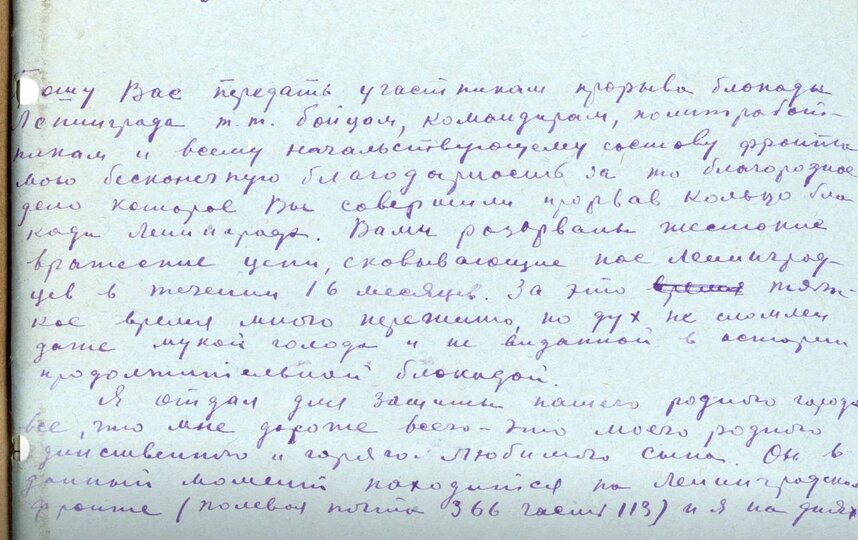 Прошу Вас передать участникам прорыва блокады
Ленинграда т.т. бойцам, командирам, политработ-
никам и всему начальствующему составу фронта
мою бесконечную благодарность за то благородное
дело которое Вы совершили прорвав кольцо бло
кады Ленинграда. Вами разорваны жестокие
вражеские цепи, сковывающие нас Ленинград-
цев в течении 16 месяцев. За это время тяж-
кое время много пережито, но дух не сломлен
даже мукой голода и не виданной в истории
продолжительной блокадой.
Я отдал для защиты нашего родного города
все, что мне дороже всего – это моего родного
единственного и горячо любимого сына. Он в
данный момент находится на Ленинградском
фронте (полевая почта 366 часть 113) и я на днях